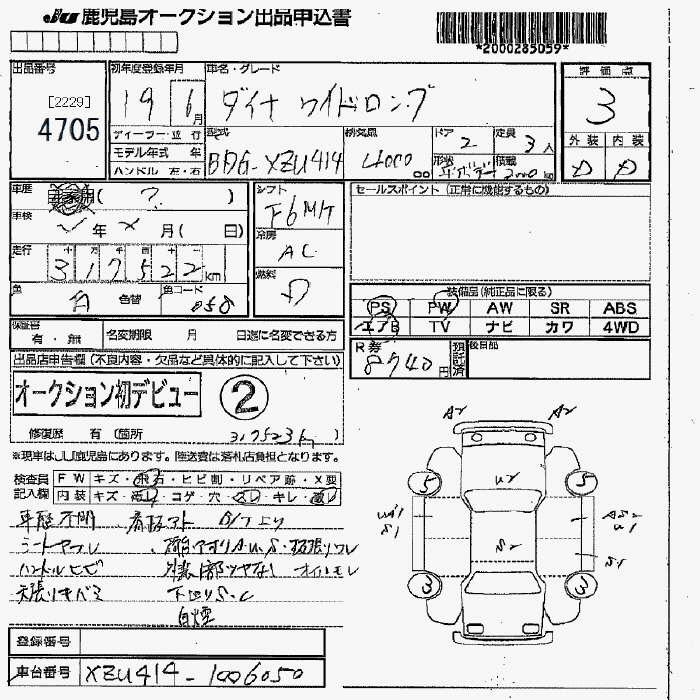 JU 鹿児島オークション出品申込書
*2000285059*
出品番号
[2229]
4705
初年度登録年月
19 6月
車名・グレード
ダイナ ワイドロング
評価点
3
ディーラー・並行
モデル年式 年
ハンドル 左・右
型式
BDG-XZU414
排気量
4000 cc
ドア
2
定員
3人
形状
積載
2000 kg
外装 内装
D D
車歴
自家用( ? )
車検
年 月(日)
走行
十 万 千 百 十 一
317522km
色
白
色替
色コード
058
シフト
F6MT
冷房
AC
燃料
D
セールスポイント(正常に機能するもの)
装備品(純正品に限る)
PS PW AW SR ABS
エアB TV ナビ カワ 4WD
保証書
有・無
名変期限 月 日迄に名変できる方
R券
8740円
預託済
後日部
出品店申告欄(不良内容・欠品など具体的に記入して下さい)
オークション初デビュー
2
修復歴 有(箇所
317523km
※現車はJU鹿児島にあります。陸送費は落札店負担となります。
検査員記入欄
FWキズ・飛石・ヒビ割・リペア跡・X要
内装キズ・汚レ・コゲ・穴・スレ・キレ・違レ
車歴不明 看板アト
シートヤブレ
ハンドルヒビ
オイルモレ
天張りキバミ
下回りS.C
白煙
A2 A2
5 5
U2
S1
A2
U1
S2
S1
3 3
登録番号
車台番号
XZU414-1006050